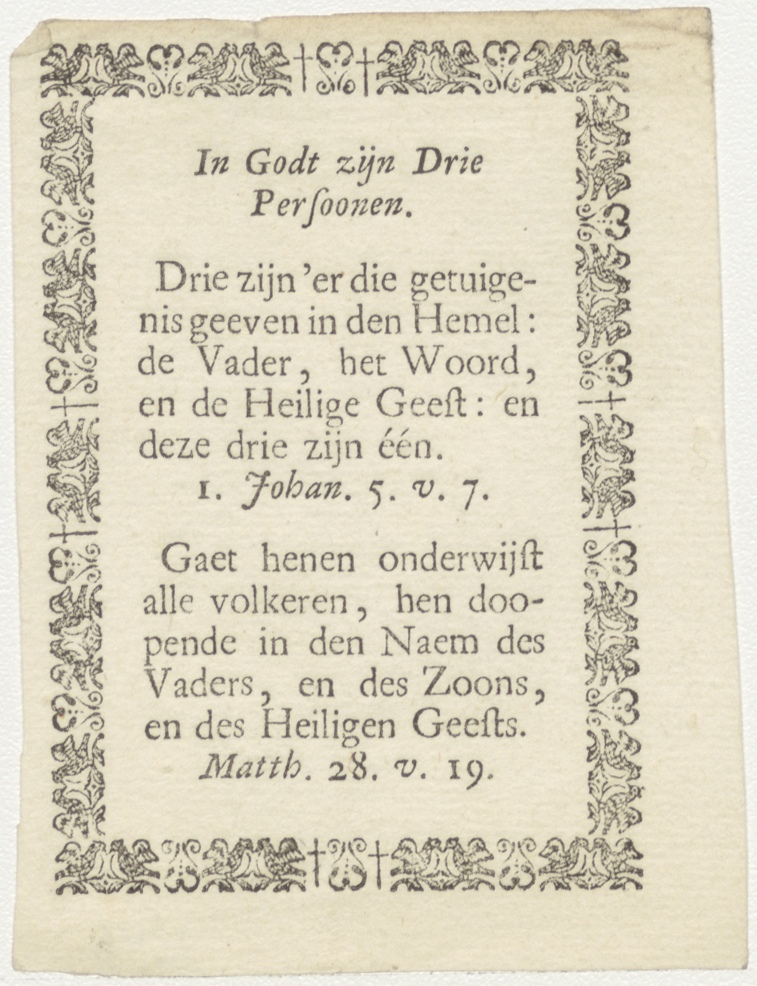 In Godt zijn Drie
Perſoonen.
Drie zijn 'er die getuige-
nis geeven in den Hemel:
de Vader, het Woord,
en de Heilige Geeſt: en
deze drie zijn één.
1. Johan. 5. v. 7.
Gaet henen onderwijſt
alle volkeren, hen doo-
pende in den Naem des
Vaders, en des Zoons,
en des Heiligen Geeſts.
Matth. 28. v. 19.